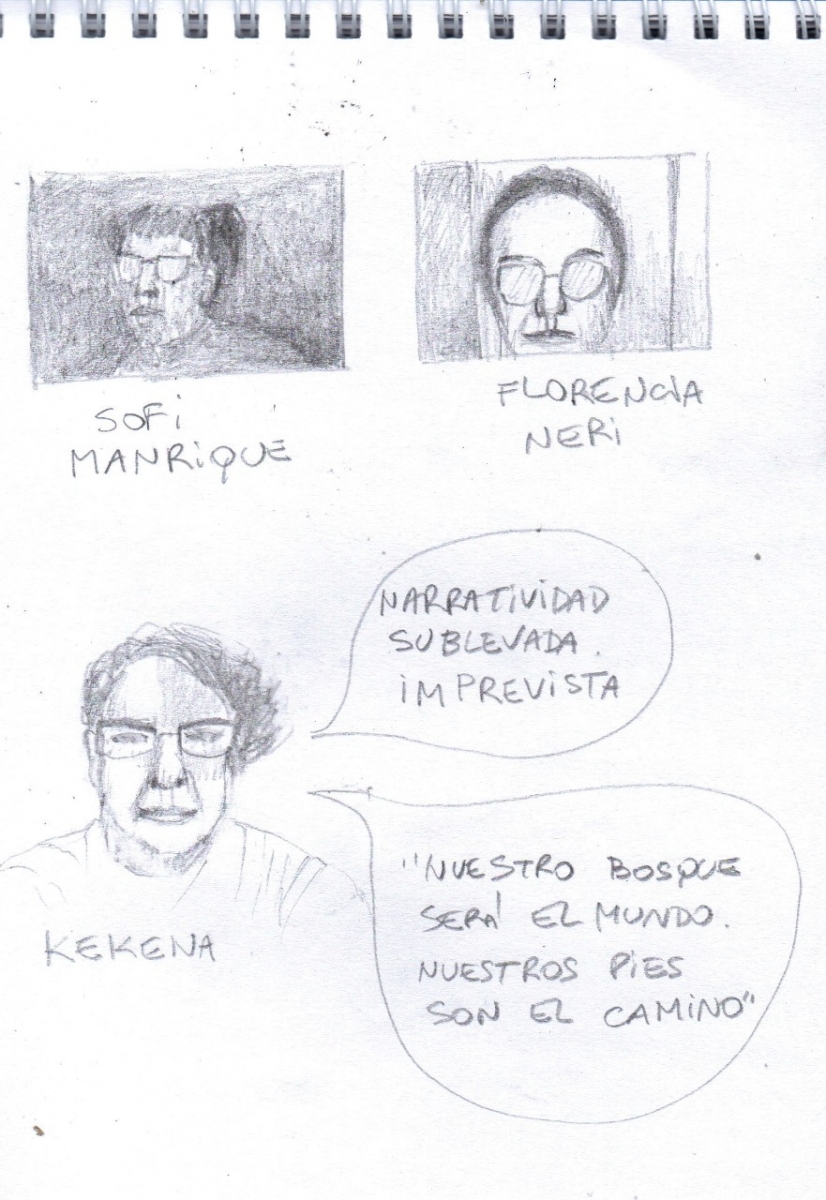 SOFi
MANRiQUE
FLORENCIA
NERi
NARRATiViDAD
SUBLEVADA.
iMPREViSTA
"NUESTRO BOSQUE
SERÁ EL MUNDO.
NUESTROS PiES
SON EL CAMiNO"
KEKENA